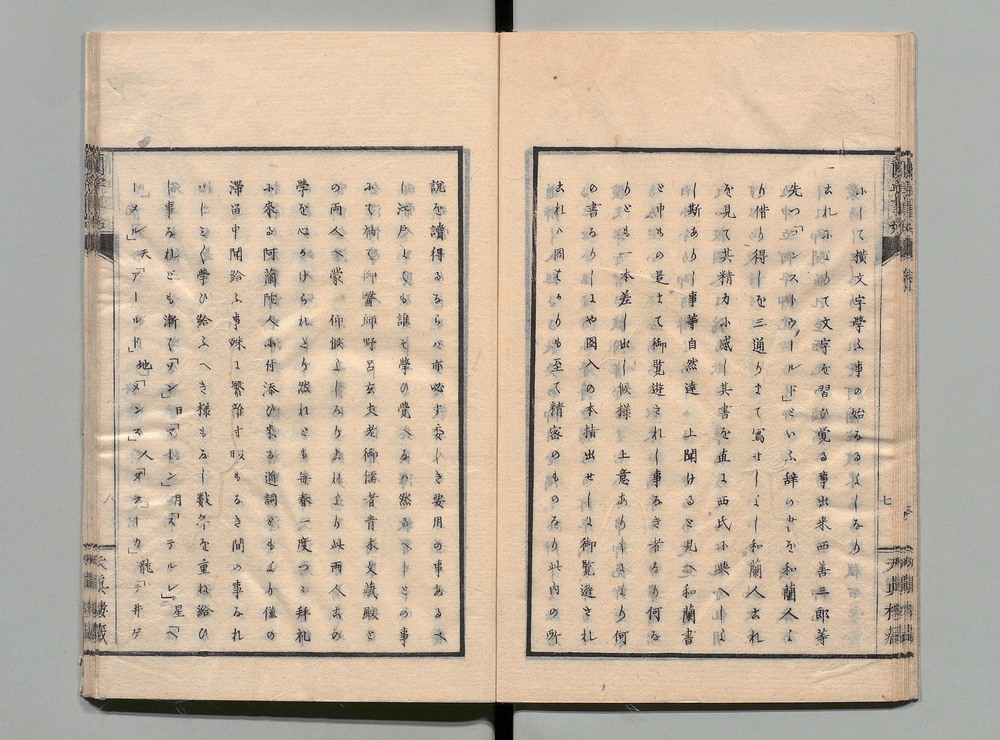 ふして横文字學ふ事の始るるよしなり
一
これによりて文字を習ひ覚る事出来西善三郎等
先つコンストウヲールドといふ辞の書を和蘭人よ
り借り得しを三通りまて寫せしよし和蘭人これ
を見て其精力に感し其書を直に西氏に與へしと
斯ありし事等自然達 上聞けると見へ和蘭書
と申もの是まて御覧遊されし事なき者なり何な
りとも一本差出し候様 上意ありしより何
の書なりしにや圖入の本指出せしに御覧遊され
これハ圖はかりも至て精密のものなり此内の所
説を讀得るならハ亦必す委しき要用の事あるへ
し江戸にても誰そ學ひ覚へなハ然るへしとの事
にて初て御醫師野呂玄丈老御儒者青木文蔵殿と
の両人へ蒙 仰候よしなりこれより此両人この
學を心かけられたり然れとも毎春一度つゝ拜礼
に来る阿蘭陀人に付添ひ来る通詞ともより僅の
滞留中聞給ふ事殊に繁雑寸暇もなき間の事なれ
ハしみ〳〵學ひ給ふへき様もなし数年を重ね給ひ
し事なれとも漸くソン日マーン月ステルレ星ヘ
ーメル天アールド地メンス人
龍
七
八
天真樓蔵